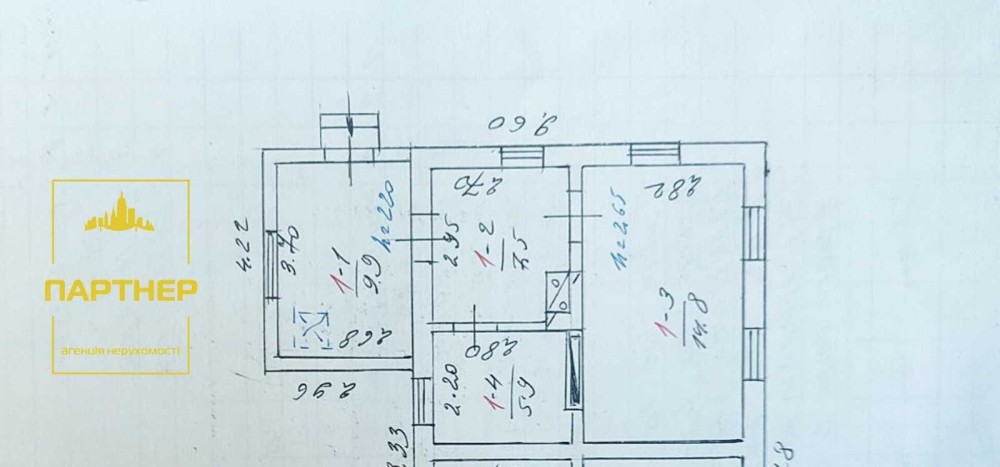 ПАРТНЕР
агенція нерухомості
9.60
4.22
3.70
1-1
9.9
h=2.20
2.68
2.96
2.70
2.95
1-2
7.5
h=2.65
2.82
1-3
14.8
2.80
2.20
1-4
5.9
.33